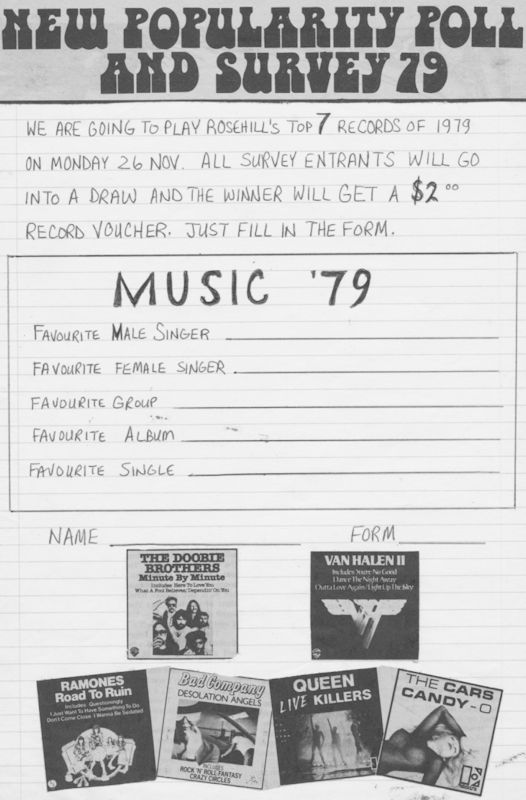 NEW POPULARITY POLL
AND SURVEY 79
WE ARE GOING TO PLAY ROSEHILL'S TOP 7 RECORDS OF 1979
ON MONDAY 26 NOV. ALL SURVEY ENTRANTS WILL GO
INTO A DRAW AND THE WINNER WILL GET A $2.00
RECORD VOUCHER. JUST FILL IN THE FORM.
MUSIC '79
FAVOURITE MALE SINGER
FAVOURITE FEMALE SINGER
FAVOURITE GROUP
FAVOURITE ALBUM
FAVOURITE SINGLE
NAME FORM
THE DOOBIE
BROTHERS
Minute By Minute
Includes Here To Love You
What A Fool Believes/Dependin' On You
VAN HALEN II
Includes You're No Good
Dance The Night Away
Outta Love Again/Light Up The Sky
RAMONES
Road To Ruin
Includes Questioningly
I Just Want To Have Something To Do
Don't Come Close I Wanna Be Sedated
Bad Company
DESOLATION ANGELS
INCLUDES
ROCK 'N' ROLL FANTASY
CRAZY CIRCLES
QUEEN
LIVE KILLERS
THE CARS
CANDY-O